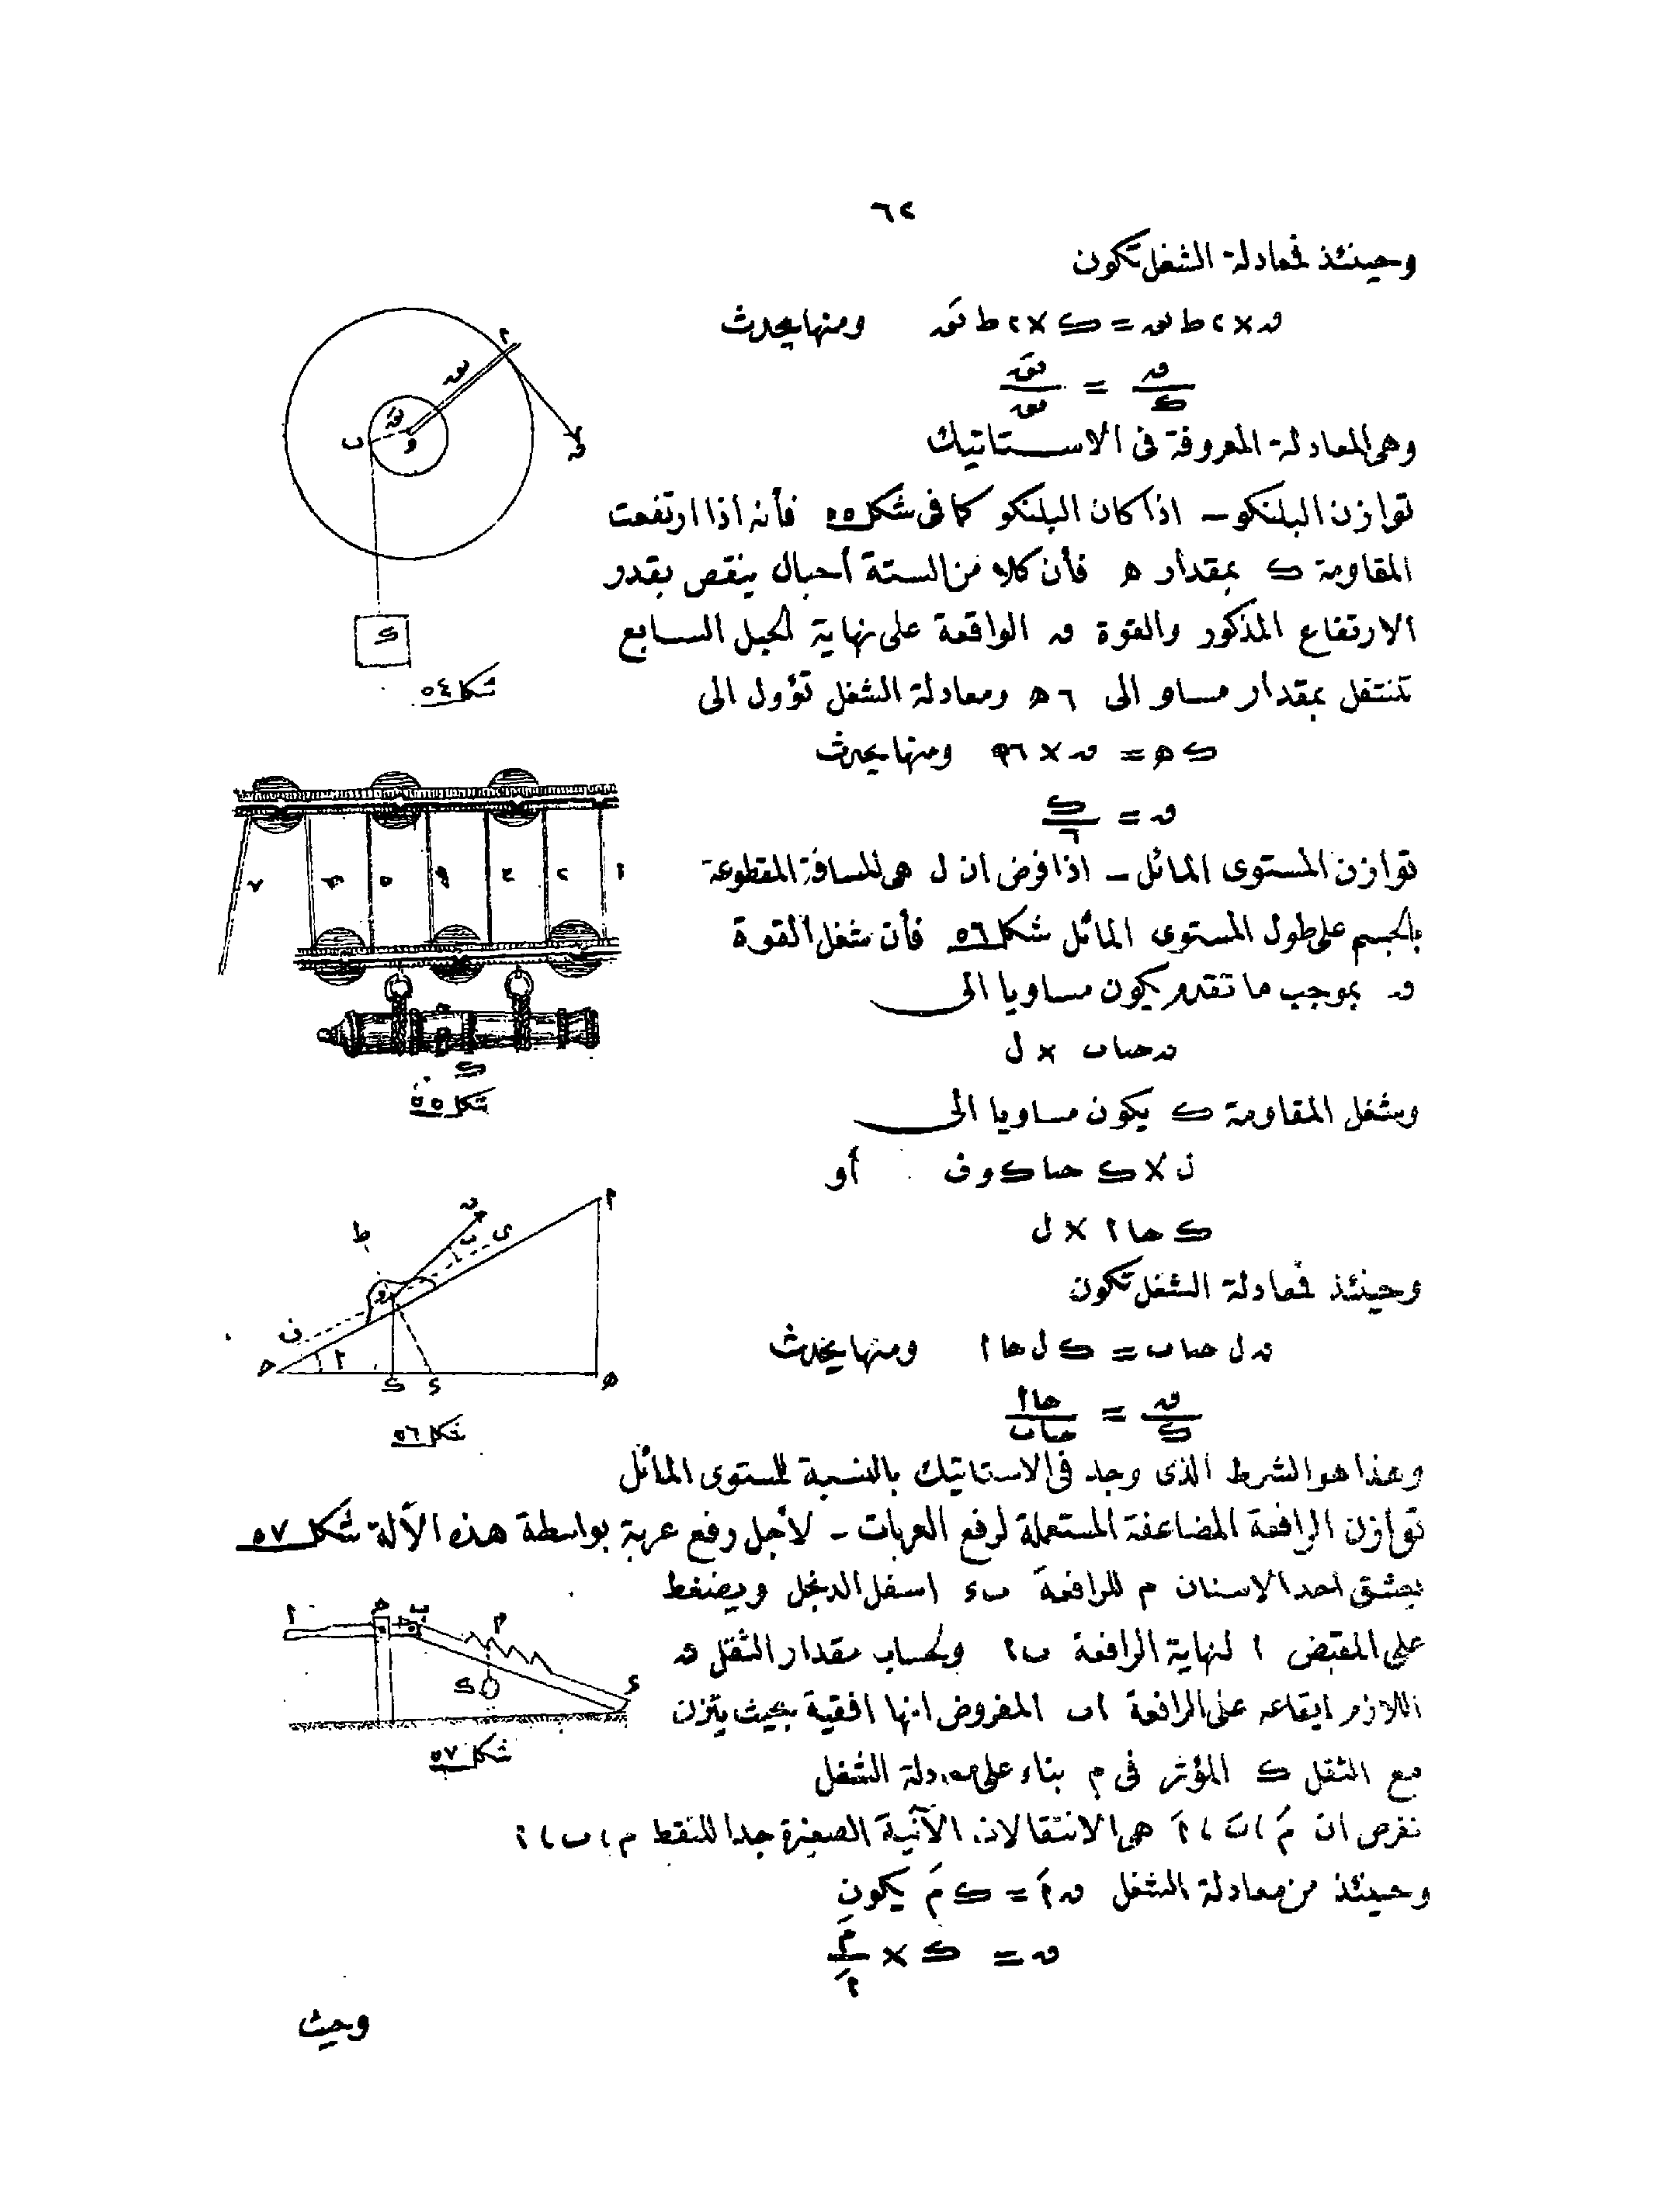 ٦٢
وحينئذ فمعادلة الشغل تكون
ق × ٢ ط نق = ك × ٢ ط نقَ ومنها يحدث
ق/ك = نقَ/نق
وهى المعادلة المعروفة فى الاستاتيك
توازن البلنكو – اذا كان البلنكو كما فى شكل ٥٥ فأنه اذا ارتفعت
المقاومة ك بمقدار ه فأن كلا من الستة أحبال ينقص بقدر
الارتفاع المذكور والقوة ق الواقعة على نهاية الحبل السابع
تنتقل بمقدار مساو الى ٦ ه ومعادلة الشغل تؤول الى
ك ه = ق × ٦ ه ومنها يحدث
ق = ك/٦
توازن المستوى المائل – اذا فرض ان ل هى المسافة المقطوعة
بالجسم على طول المستوى المائل شكل ٥٦ فأن شغل القوة
ق بموجب ما تقدم يكون مساويا الى
ق حتا ب × ل
وشغل المقاومة ك يكون مساويا الى
ل × ك حتا ك و ف أو
ك حا ا × ل
وحينئذ فمعادلة الشغل تكون
ق ل حتا ب = ك ل حا ا ومنها يحدث
ق/ك = حا ا/حتا ب
وهذا هو الشرط الذى وجد فى الاستاتيك بالنسبة للمستوى المائل
توازن الرافعة المضاعفة المستعملة لرفع العربات – لأجل رفع عربة بواسطة هذه الآلة شكل ٥٧
يعشق احد الاسنان م للرافعة ب ء اسفل الدنجل ويضغط
على المقبض ا لنهاية الرافعة ب ا ولحساب مقدار الثقل ق
اللازم ايقاعه على الرافعة ا ب المفروض انها افقية بحيث يتزن
مع الثقل ك المؤثر فى م بناء على معادلة الشغل
نفرض ان مَ ، بَ ، اَ هى الانتقالات الآنية الصغيرة جدا للنقط م ، ب ، ا
وحينئذ من معادلة الشغل ق اَ = ك مَ يكون
ق = ك × مَ/اَ
وحيث
ا
نق
نقَ
ب
و
ق
ك
شكل ٥٤
٧ ٦ ٥ ٤ ٣ ٢ ١
ك
شكل ٥٥
ا
ق
ى
ب
ط
و
ف
ا
ك ء
شكل ٥٦
ا
ب
م
ك
ء
شكل ٥٧